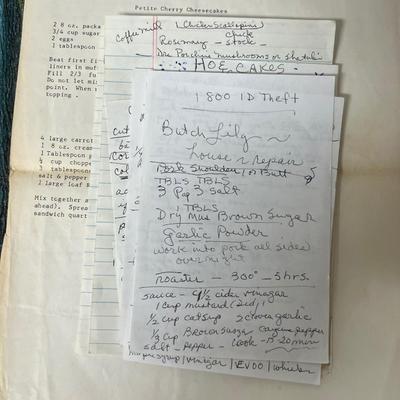 Petite Cherry Cheesecakes
2 8 oz. packa
3/4 cup sugar
2 eggs
1 tablespoon
Beat first fi
liners in muf
Fill 2/3 fu
Do not let mi
point. When
topping.
4 large carrot
1 8 oz. crea
1 Tablespoon
½ cup chopp
3 tablespoons
salt & pepper
1 large loaf
Mix together a
ahead). Sprea
sandwich quart
chick
Rosemary - stock -
Dre Porchini mushrooms or
HOE CAKES
1 800 ID Theft
Butch Lilg
house repair
Pork Shoulder or Butt
TBLS TBLS
3 Pap 3 Salt
1 TBLS
Dry Mus Brown Sugar
Garlic Powder
work into pork all sides
overnight
roaster - 300° - 5 hrs.
sauce - 1½ cider vinegar
1 cup mustard
½ cup catsup 3 cloves garlic
⅓ cup Brown Sugar Cayenne pepper
salt - pepper - cook - 15-20 min
vinegar / EVOO /